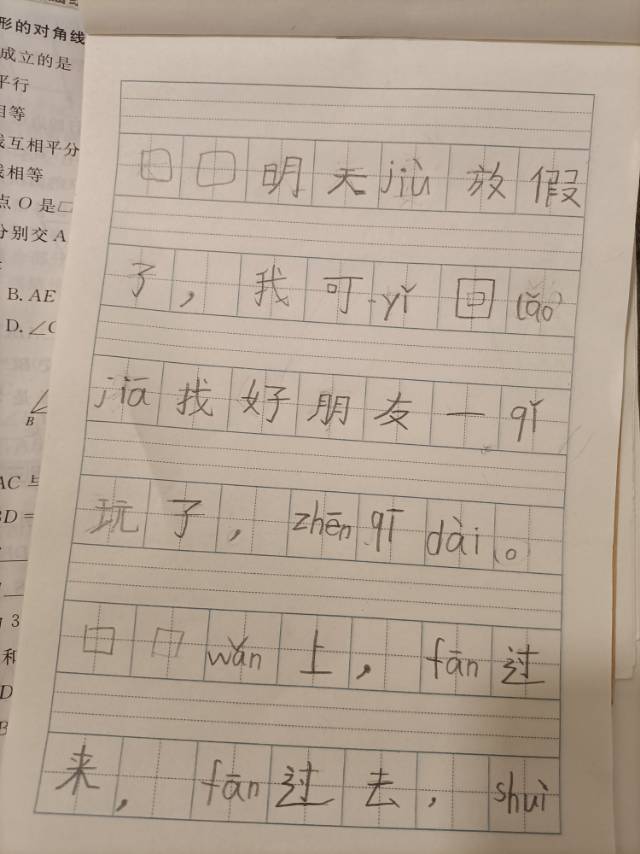 形的对角线
成立的是
平行
相等
线互相平分
线相等
点 O 是□
分别交 A
B. AE
D. ∠C
B
AC 与
BD =
3
和
D
B
口口明天jiù放假
了，我可yǐ回lǎo
jiā找好朋友一qǐ
玩了，zhēn qī dài。
口口wǎn上，fān过
来，fān过去，shuì